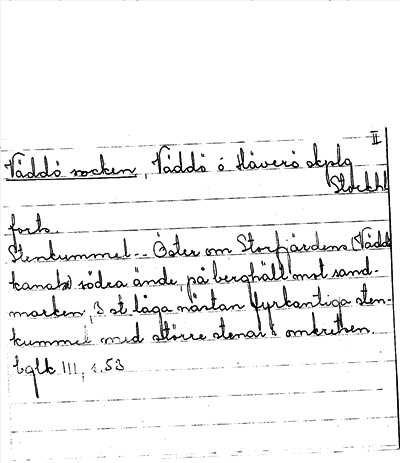 II
Väddö socken, Väddö o Häverö skplg
Stockhl
forts.
Stenkummel.- Öster om Storfjärdens (Vädd
kanal) södra ände, på berghäll mot sand-
marken, 3 st låga nästan fyrkantiga sten-
kummel med större stenar i omkretsen.
Uglk III, s.53